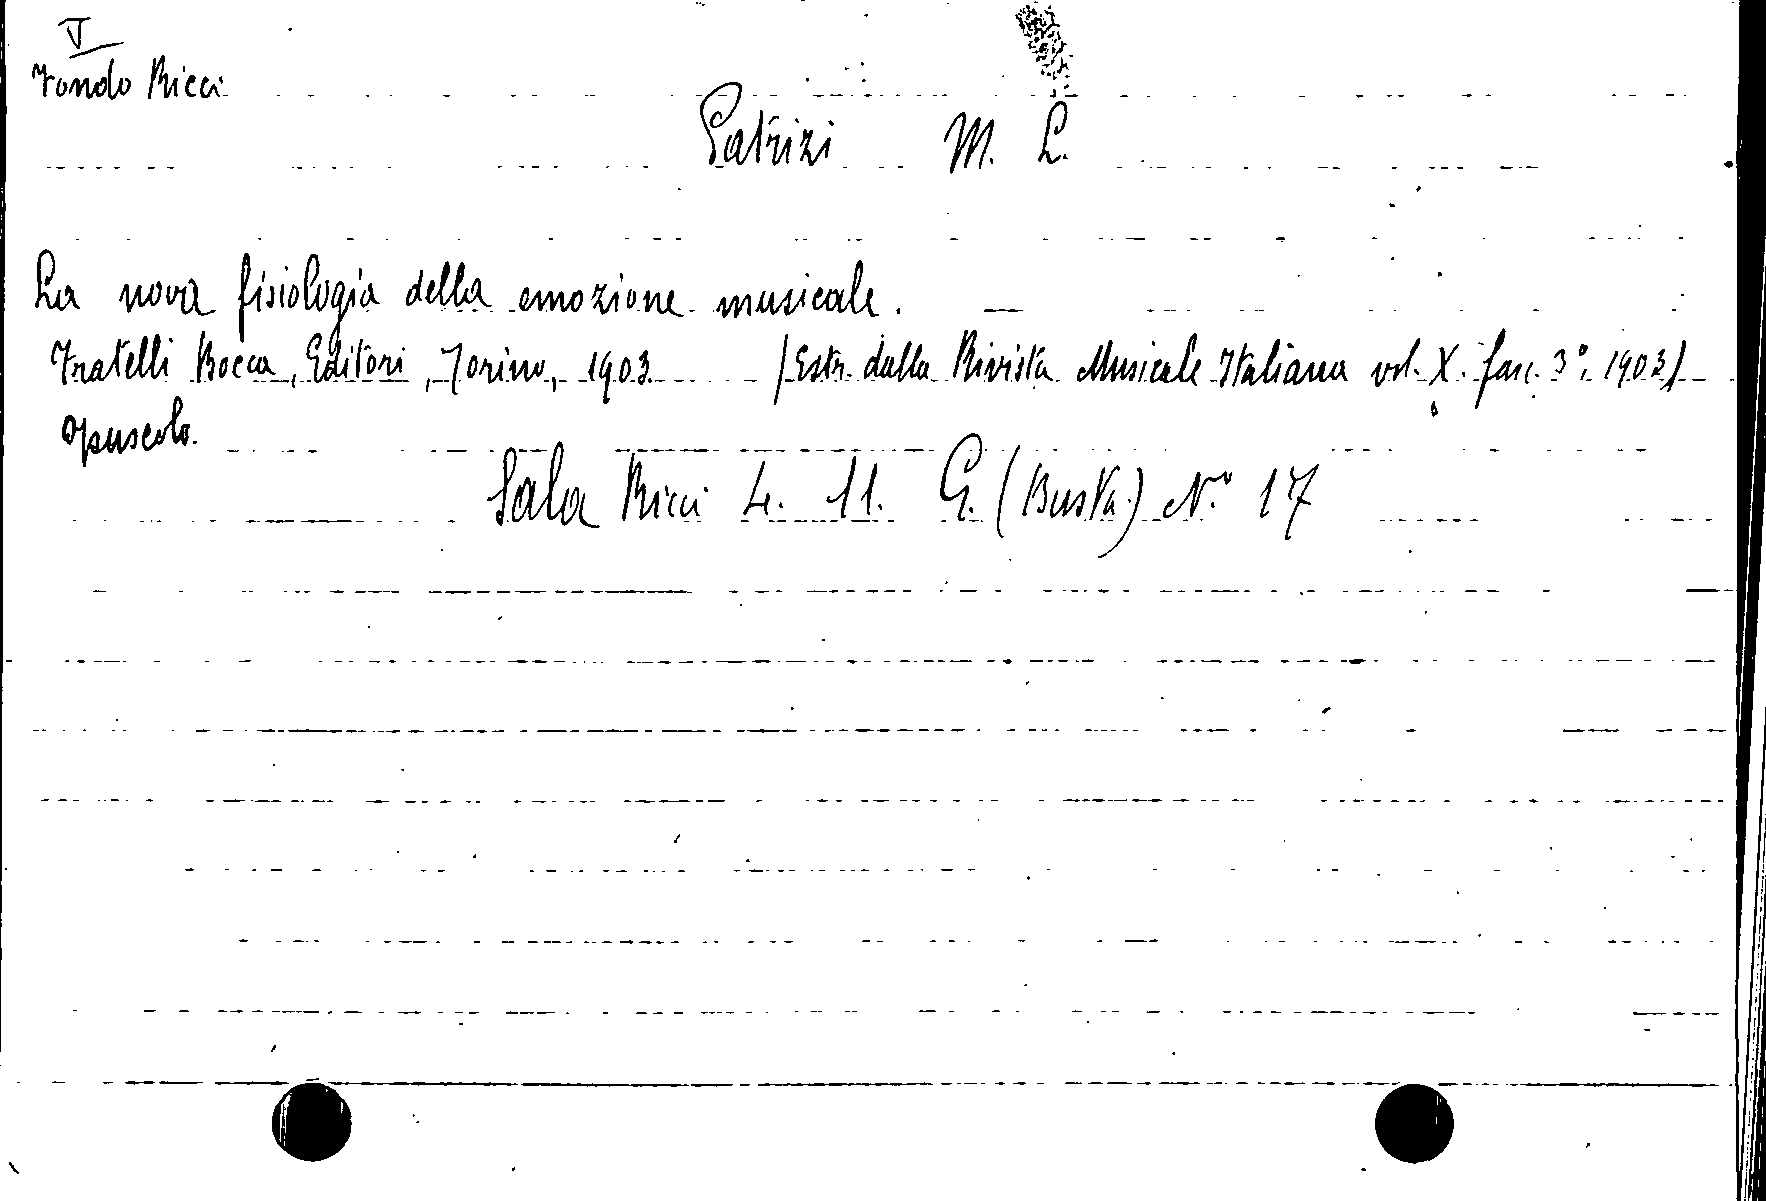 V
Fondo Ricci
Patrizi M. L.
La nova fisiologia della emozione musicale.
Fratelli Bocca, Editori, Torino, 1903 /Estr. dalla Rivista Musicale Italiana vol. X. fasc. 3°. 1903/
opuscolo.
Sala Ricci 4. 11. G. (Busta) N.° 17